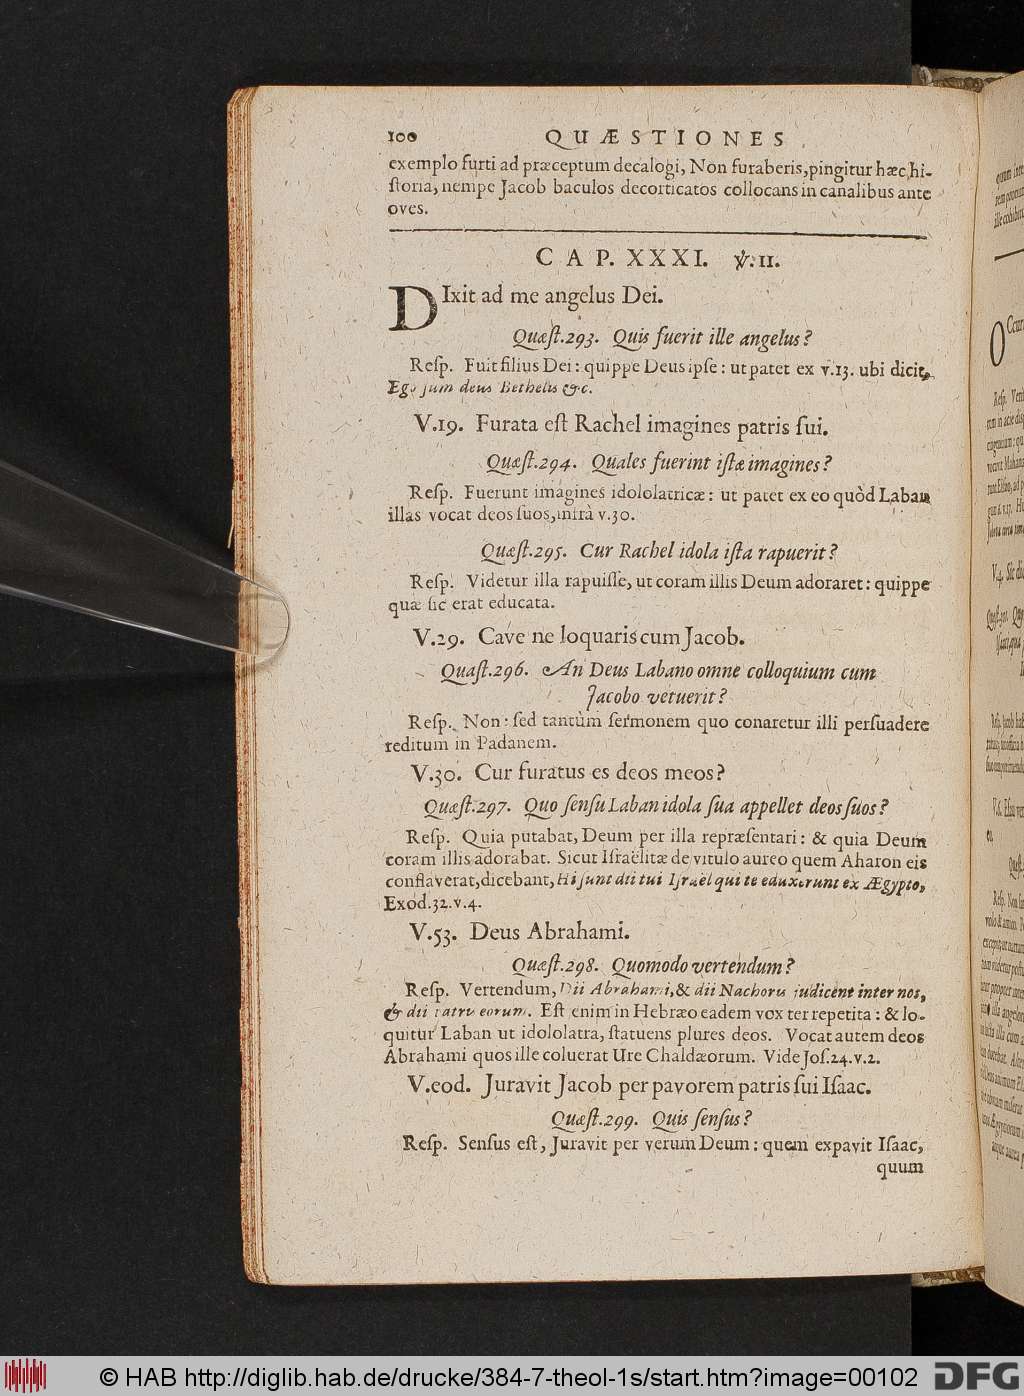 100 QUÆSTIONES
exemplo furti ad præceptum decalogi, Non furaberis, pingitur hæc hi-
ſtoria, nempe Jacob baculos decorticatos collocans in canalibus ante
oves.
CAP. XXXI. ℣. 11.
DIxit ad me angelus Dei.
Quæſt. 293. Quis fuerit ille angelus?
Reſp. Fuit filius Dei: quippe Deus ipſe: ut patet ex v. 13. ubi dicit,
Ego ſum deus Bethelis &c.
V. 19. Furata eſt Rachel imagines patris ſui.
Quæſt. 294. Quales fuerint iſtæ imagines?
Reſp. Fuerunt imagines idololatricæ: ut patet ex eo quòd Laban
illas vocat deos ſuos, infrà v. 30.
Quæſt. 295. Cur Rachel idola iſta rapuerit?
Reſp. Videtur illa rapuiſſe, ut coram illis Deum adoraret: quippe
quæ ſic erat educata.
V. 29. Cave ne loquaris cum Jacob.
Quæſt. 296. An Deus Labano omne colloquium cum
Jacobo vetuerit?
Reſp. Non: ſed tantùm ſermonem quo conaretur illi perſuadere
reditum in Padanem.
V. 30. Cur furatus es deos meos?
Quæſt. 297. Quo ſenſu Laban idola ſua appellet deos ſuos?
Reſp. Quia putabat, Deum per illa repræſentari: & quia Deum
coram illis adorabat. Sicut Iſraëlitæ de vitulo aureo quem Aharon eis
conflaverat, dicebant, Hi ſunt dii tui Iſraël qui te eduxerunt ex Ægypto,
Exod. 32. v. 4.
V. 53. Deus Abrahami.
Quæſt. 298. Quomodo vertendum?
Reſp. Vertendum, Dii Abrahami, & dii Nachoris judicent inter nos,
& dii patris eorum. Eſt enim in Hebræo eadem vox ter repetita: & lo-
quitur Laban ut idololatra, ſtatuens plures deos. Vocat autem deos
Abrahami quos ille coluerat Ure Chaldæorum. Vide Joſ. 24. v. 2.
V. eod. Juravit Jacob per pavorem patris ſui Iſaac.
Quæſt. 299. Quis ſenſus?
Reſp. Senſus eſt, Juravit per verum Deum: quem expavit Iſaac,
quum
© HAB http://diglib.hab.de/drucke/384-7-theol-1s/start.htm?image=00102
DFG